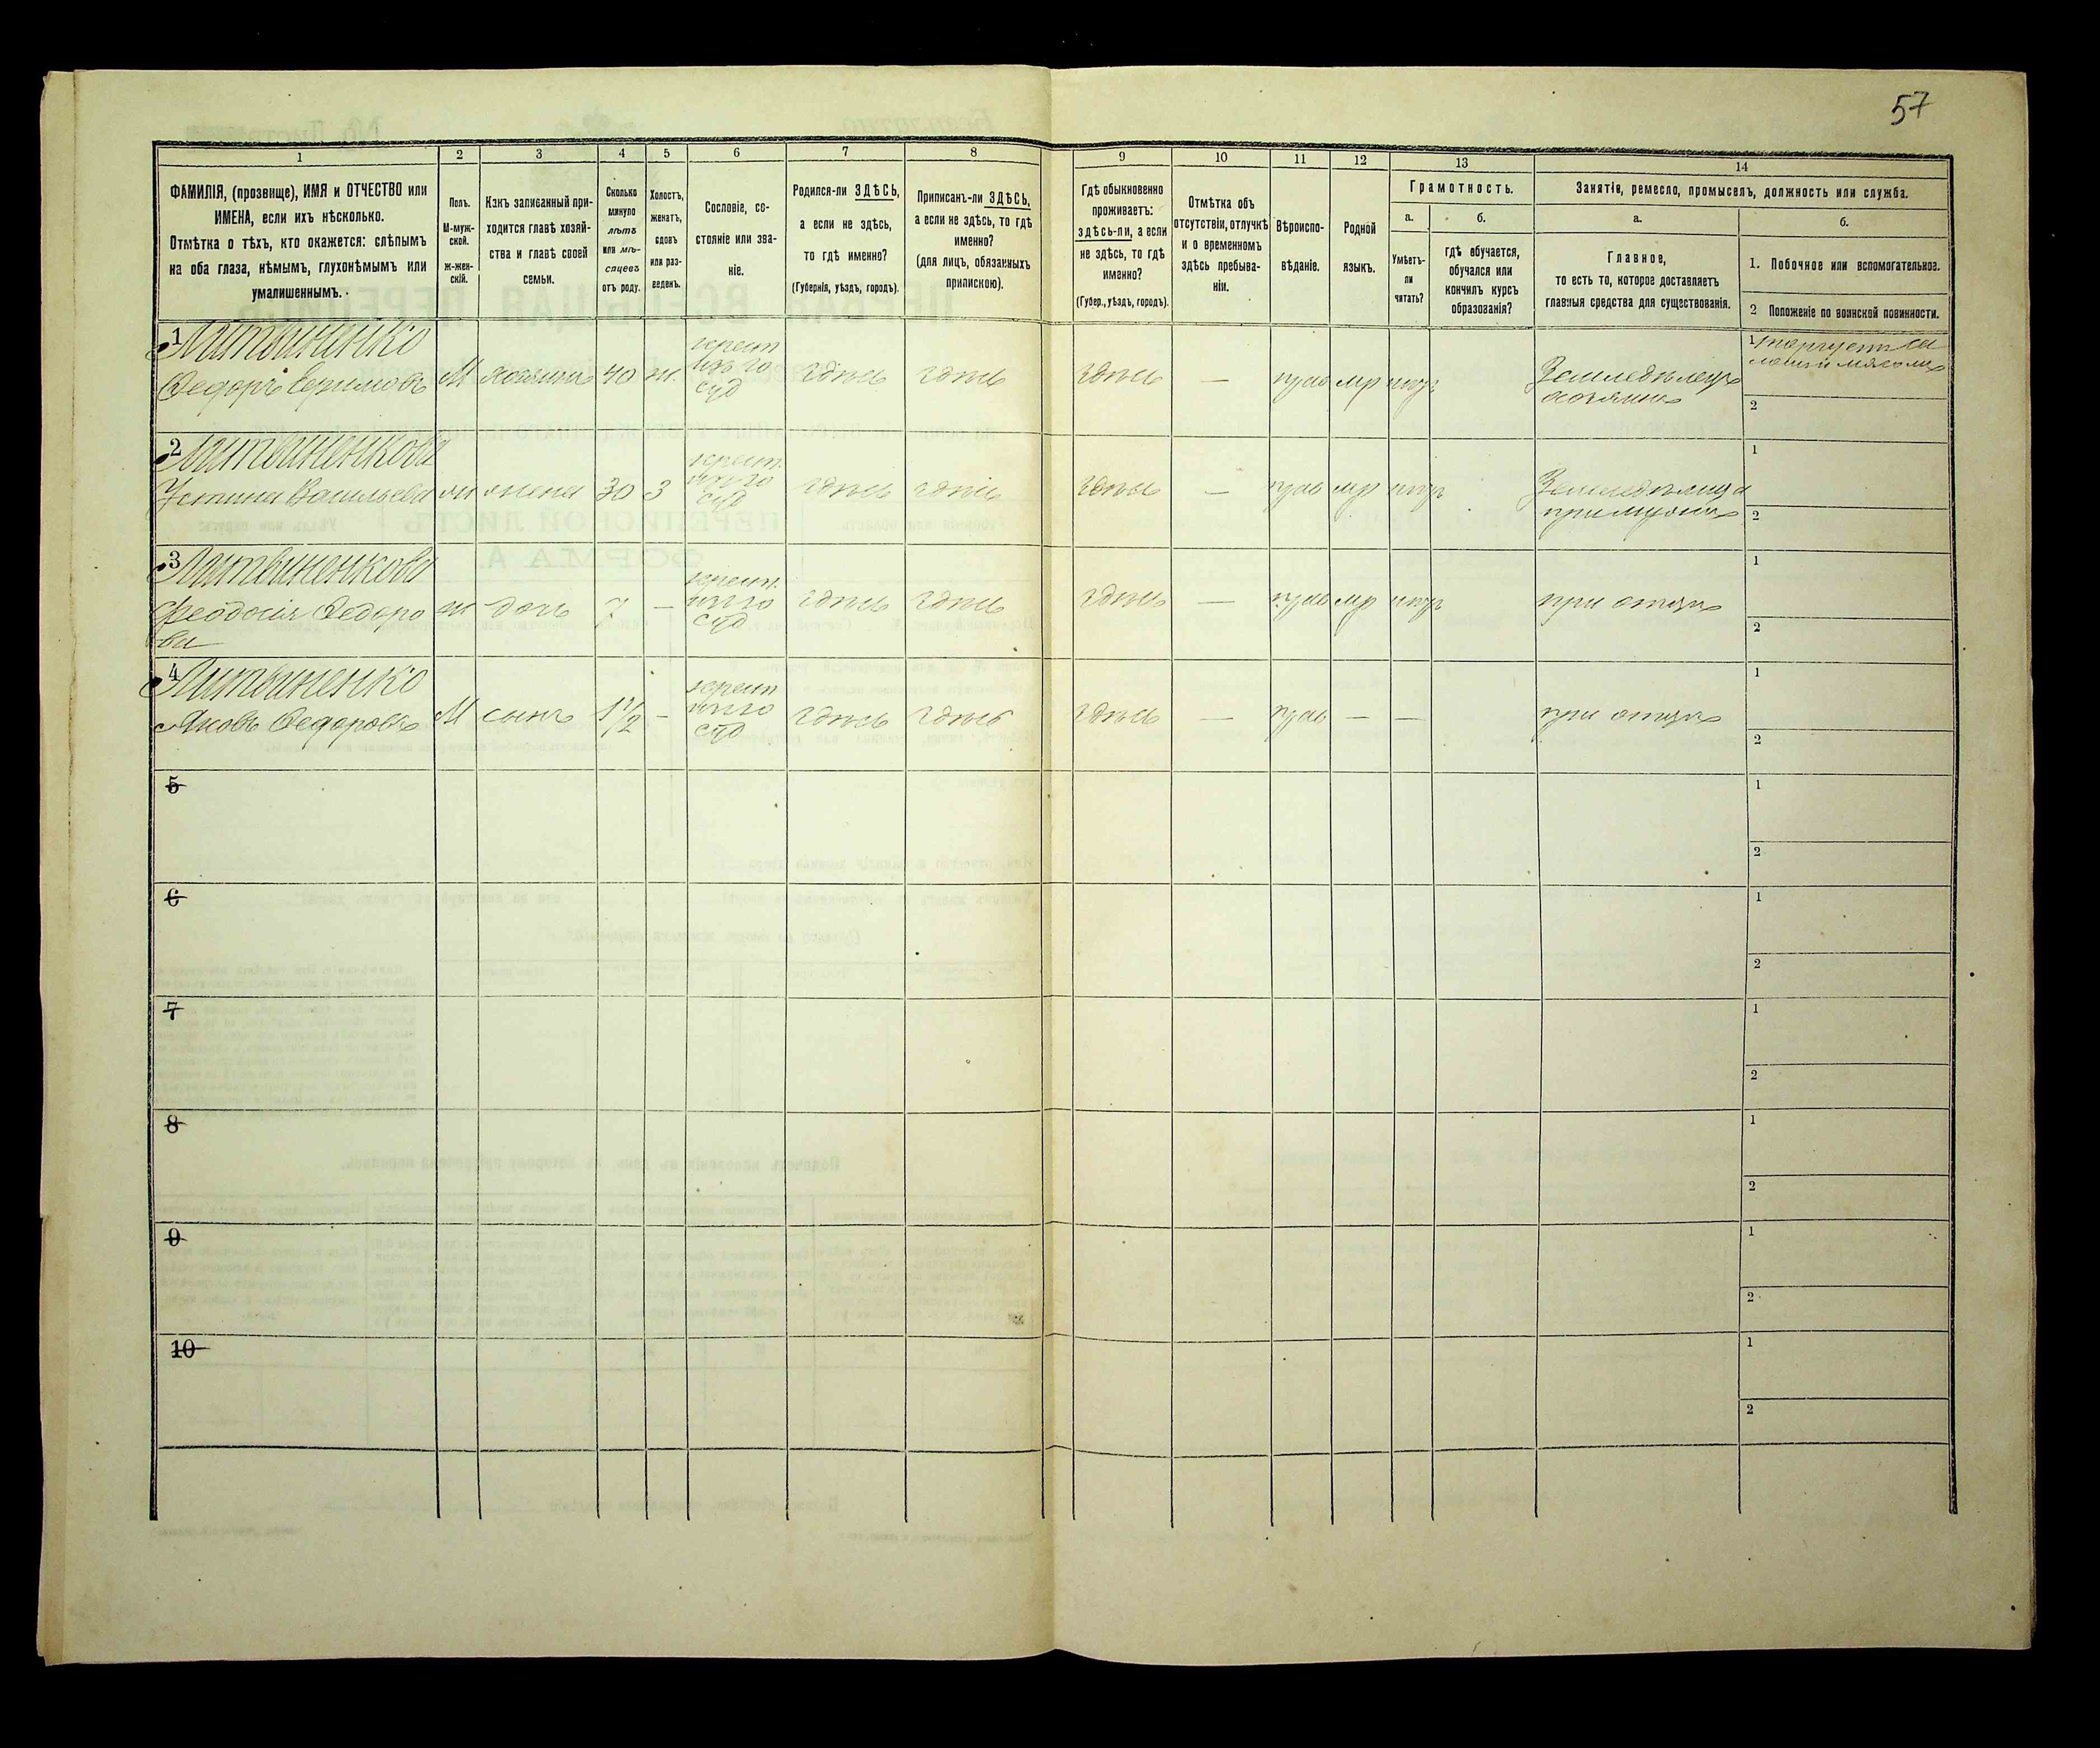 57
1
2
3
4
5
6
7
8
9
10
11
12
13
14
ФАМИЛІЯ, (прозвище), ИМЯ и ОТЧЕСТВО или
ИМЕНА, если ихъ нѣсколько.
Отмѣтка о тѣхъ, кто окажется: слѣпымъ
на оба глаза, нѣмымъ, глухонѣмымъ или
умалишеннымъ.
Полъ.
М-муж-
ской.
ж-жен-
скій.
Какъ записанный при-
ходится главѣ хозяй-
ства и главѣ своей
семьи.
Сколько
минуло
лѣтъ
или мѣ-
сяцевъ
отъ роду.
Холостъ,
женатъ,
вдовъ
или раз-
веденъ.
Сословіе, со-
стояніе или зва-
ніе.
Родился-ли ЗДѢСЬ,
а если не здѣсь,
то гдѣ именно?
(Губернія, уѣздъ, городъ).
Приписанъ-ли ЗДѢСЬ,
а если не здѣсь, то гдѣ
именно?
(для лицъ, обязанныхъ
припискою).
Гдѣ обыкновенно
проживаетъ:
здѣсь-ли, а если
не здѣсь, то гдѣ
именно?
(Губер., уѣздъ, городъ).
Отмѣтка объ
отсутствіи, отлучкѣ
и о временномъ
здѣсь пребыва-
ніи.
Вѣроиспо-
вѣданіе.
Родной
языкъ.
Грамотность.
а.
Умѣетъ-
ли
читать?
б.
гдѣ обучается,
обучался или
кончилъ курсъ
образованія?
Занятіе, ремесло, промыселъ, должность или служба.
а.
Главное,
то есть то, которое доставляетъ
главныя средства для существованія.
б.
1. Побочное или вспомогательное.
2 Положеніе по воинской повинности.
1 Литвиненко
Федоръ
М хозяинъ 40 ж.
здѣсь здѣсь здѣсь — прав мр
Земледѣлецъ
хозяинъ
1 торгуетъ са
ломъ и мясомъ
2
2 Литвиненкова
Устинья Васильева ж жена 30 з
здѣсь здѣсь здѣсь — прав мр
при мужѣ
1
2
3 Литвиненкова
Феодосія Федоро
ва
ж дочь 7 —
здѣсь здѣсь здѣсь — прав мр
при отцѣ
1
2
4 Литвиненко
Яковъ Федоровъ М сынъ 1 1/2 —
здѣсь здѣсь здѣсь — прав — —
при отцѣ
1
2
5
1
2
6
1
2
7
1
2
8
1
2
9
1
2
10
1
2